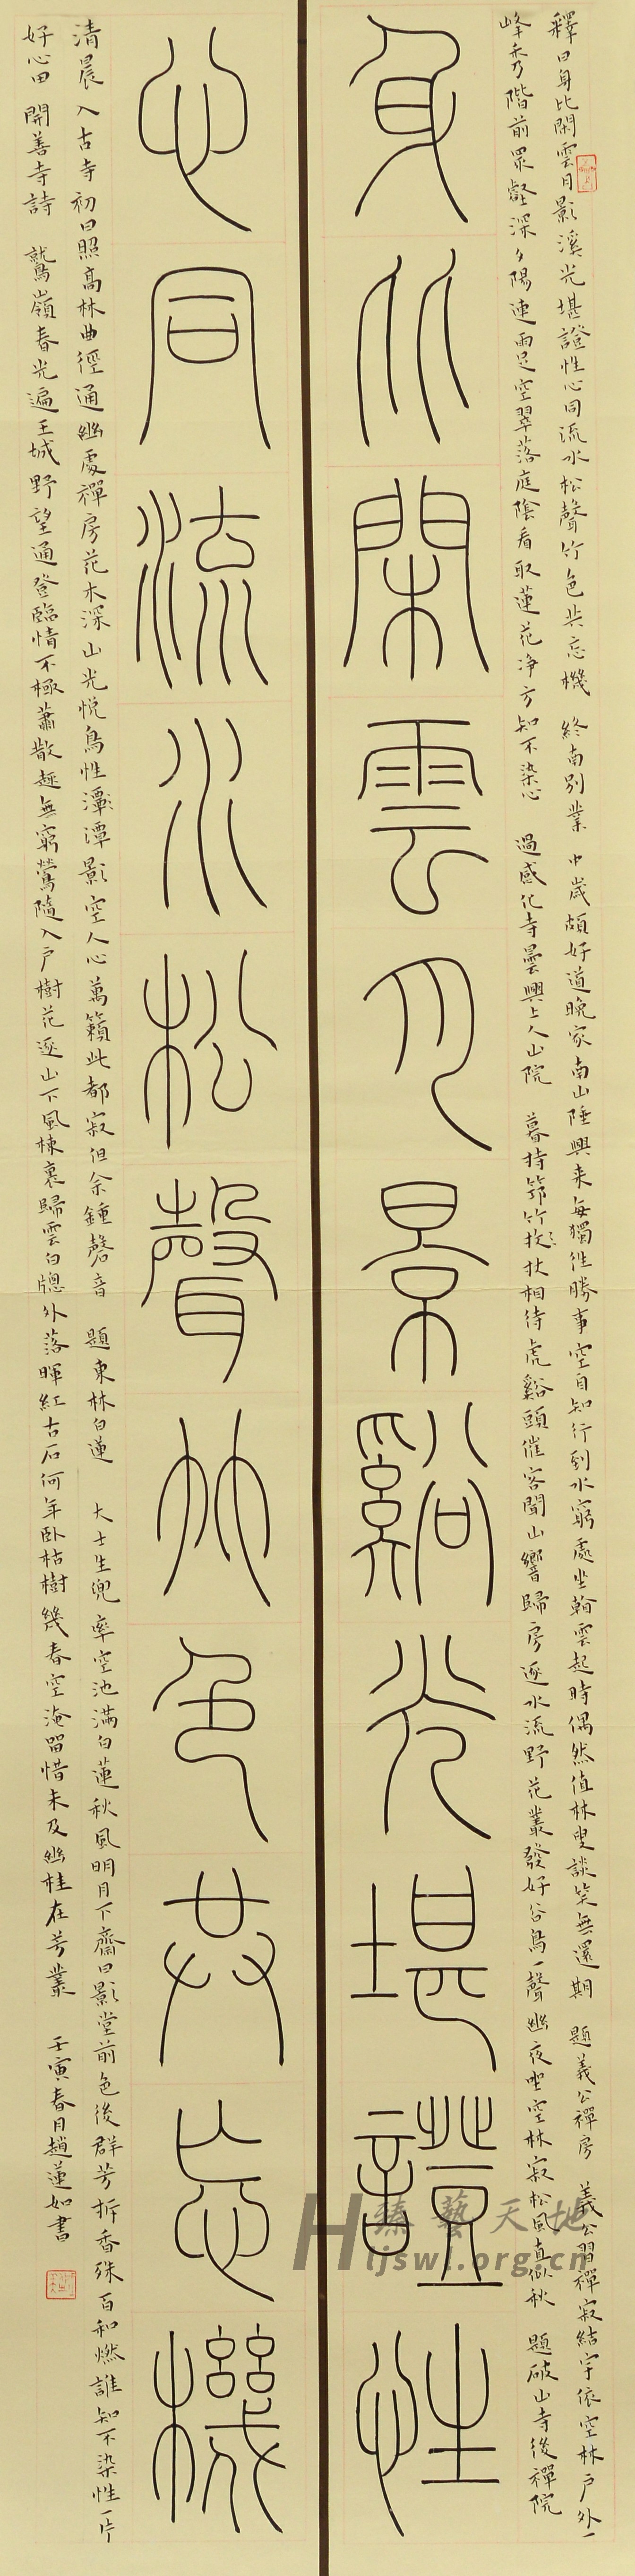 釋曰身比閑雲月影溪光堪證性心同流水松聲竹色共忘機 終南別業 中歲頗好道晚家南山陲興來每獨往勝事空自知行到水窮處坐看雲起時偶然值林叟談笑無還期 題義公禪房 義公習禪寂結宇依空林戶外一
峰秀階前眾壑深夕陽連雨足空翠落庭陰看取蓮花净方知不染心 過感化寺曇興上人山院 暮持筇竹杖相待虎谿頭催客聞山響歸房逐水流野花叢發好谷鳥一聲幽夜坐空林寂松風直似秋 題破山寺後禪院
身比閑雲月景谿光堪證性
心同流水松聲竹色共忘機
清晨入古寺初日照高林曲徑通幽處禪房花木深山光悅鳥性潭影空人心萬籟此都寂但余鍾磬音 題東林白蓮 大士生兜率空池滿白蓮秋風明月下齋日影堂前色後群芳拆香殊百和燃誰知不染性一片
好心田 開善寺詩 鷲嶺春光遍王城野望通登臨情不極蕭散趣無窮鶯隨入戶樹花逐山下風棟裏歸雲白牕外落暉紅古石何年卧枯樹幾春空淹留惜未及幽桂在芳叢 壬寅春月趙蓮如書
臻藝天地
Hljswl.org.cn